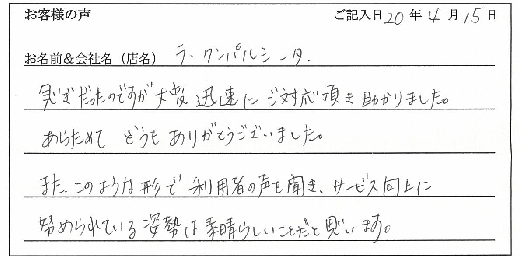 お客様の声 ご記入日 20年 4月 15日
お名前&会社名（店名） ラ・クンパルシータ.
急ぎだったのですが大変迅速にご対応頂き助かりました。
あらためて どうもありがとうございました。
また、このような形で利用者の声を聞き、サービス向上に
努められている姿勢は素晴らしいことだと思います。